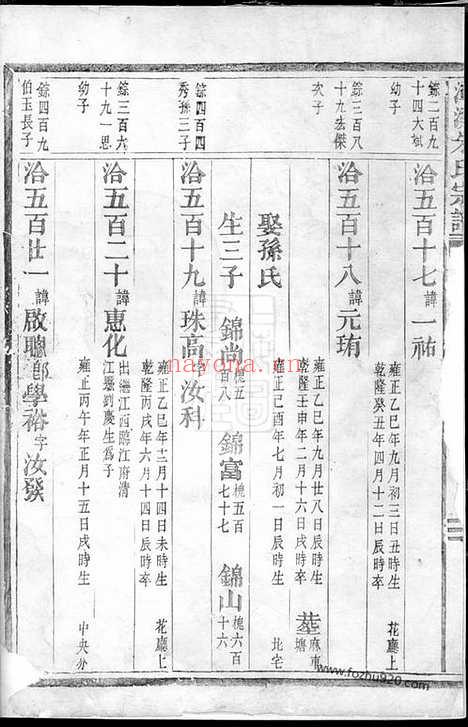 氏宗譜
錝二百九
十四大斌
幼子
洽五百十七 諱一祐
雍正乙巳年九月初三日丑時生
乾隆癸丑年四月十二日辰時卒
花廳上
錝三百八
十九法傑
次子
洽五百十八 諱元珛
雍正乙巳年九月廿八日辰時生
乾隆壬申年二月十六日戌時卒
塟麻車塘
娶孫氏
雍正己酉年七月初一日辰時生
北宅
生三子 錦尚 槐五百八 錦富 槐五百七十七 錦山 槐六百十六
錝四百四
秀孫三子
洽五百十九 諱珠高 字汝科
雍正乙巳年十二月十四日未時生
乾隆丙戌年六月十四日辰時卒
花廳上
錝三百六
十九一思
幼子
洽五百二十 諱惠化
出繼江西臨江府清
江縣劉慶生為子
錝四百九
伯玉長子
洽五百廿一 諱啟聰 學裕 字汝發
雍正丙午年正月十五日戌時生
中央分
nayona.cn
www.fozhu920.com